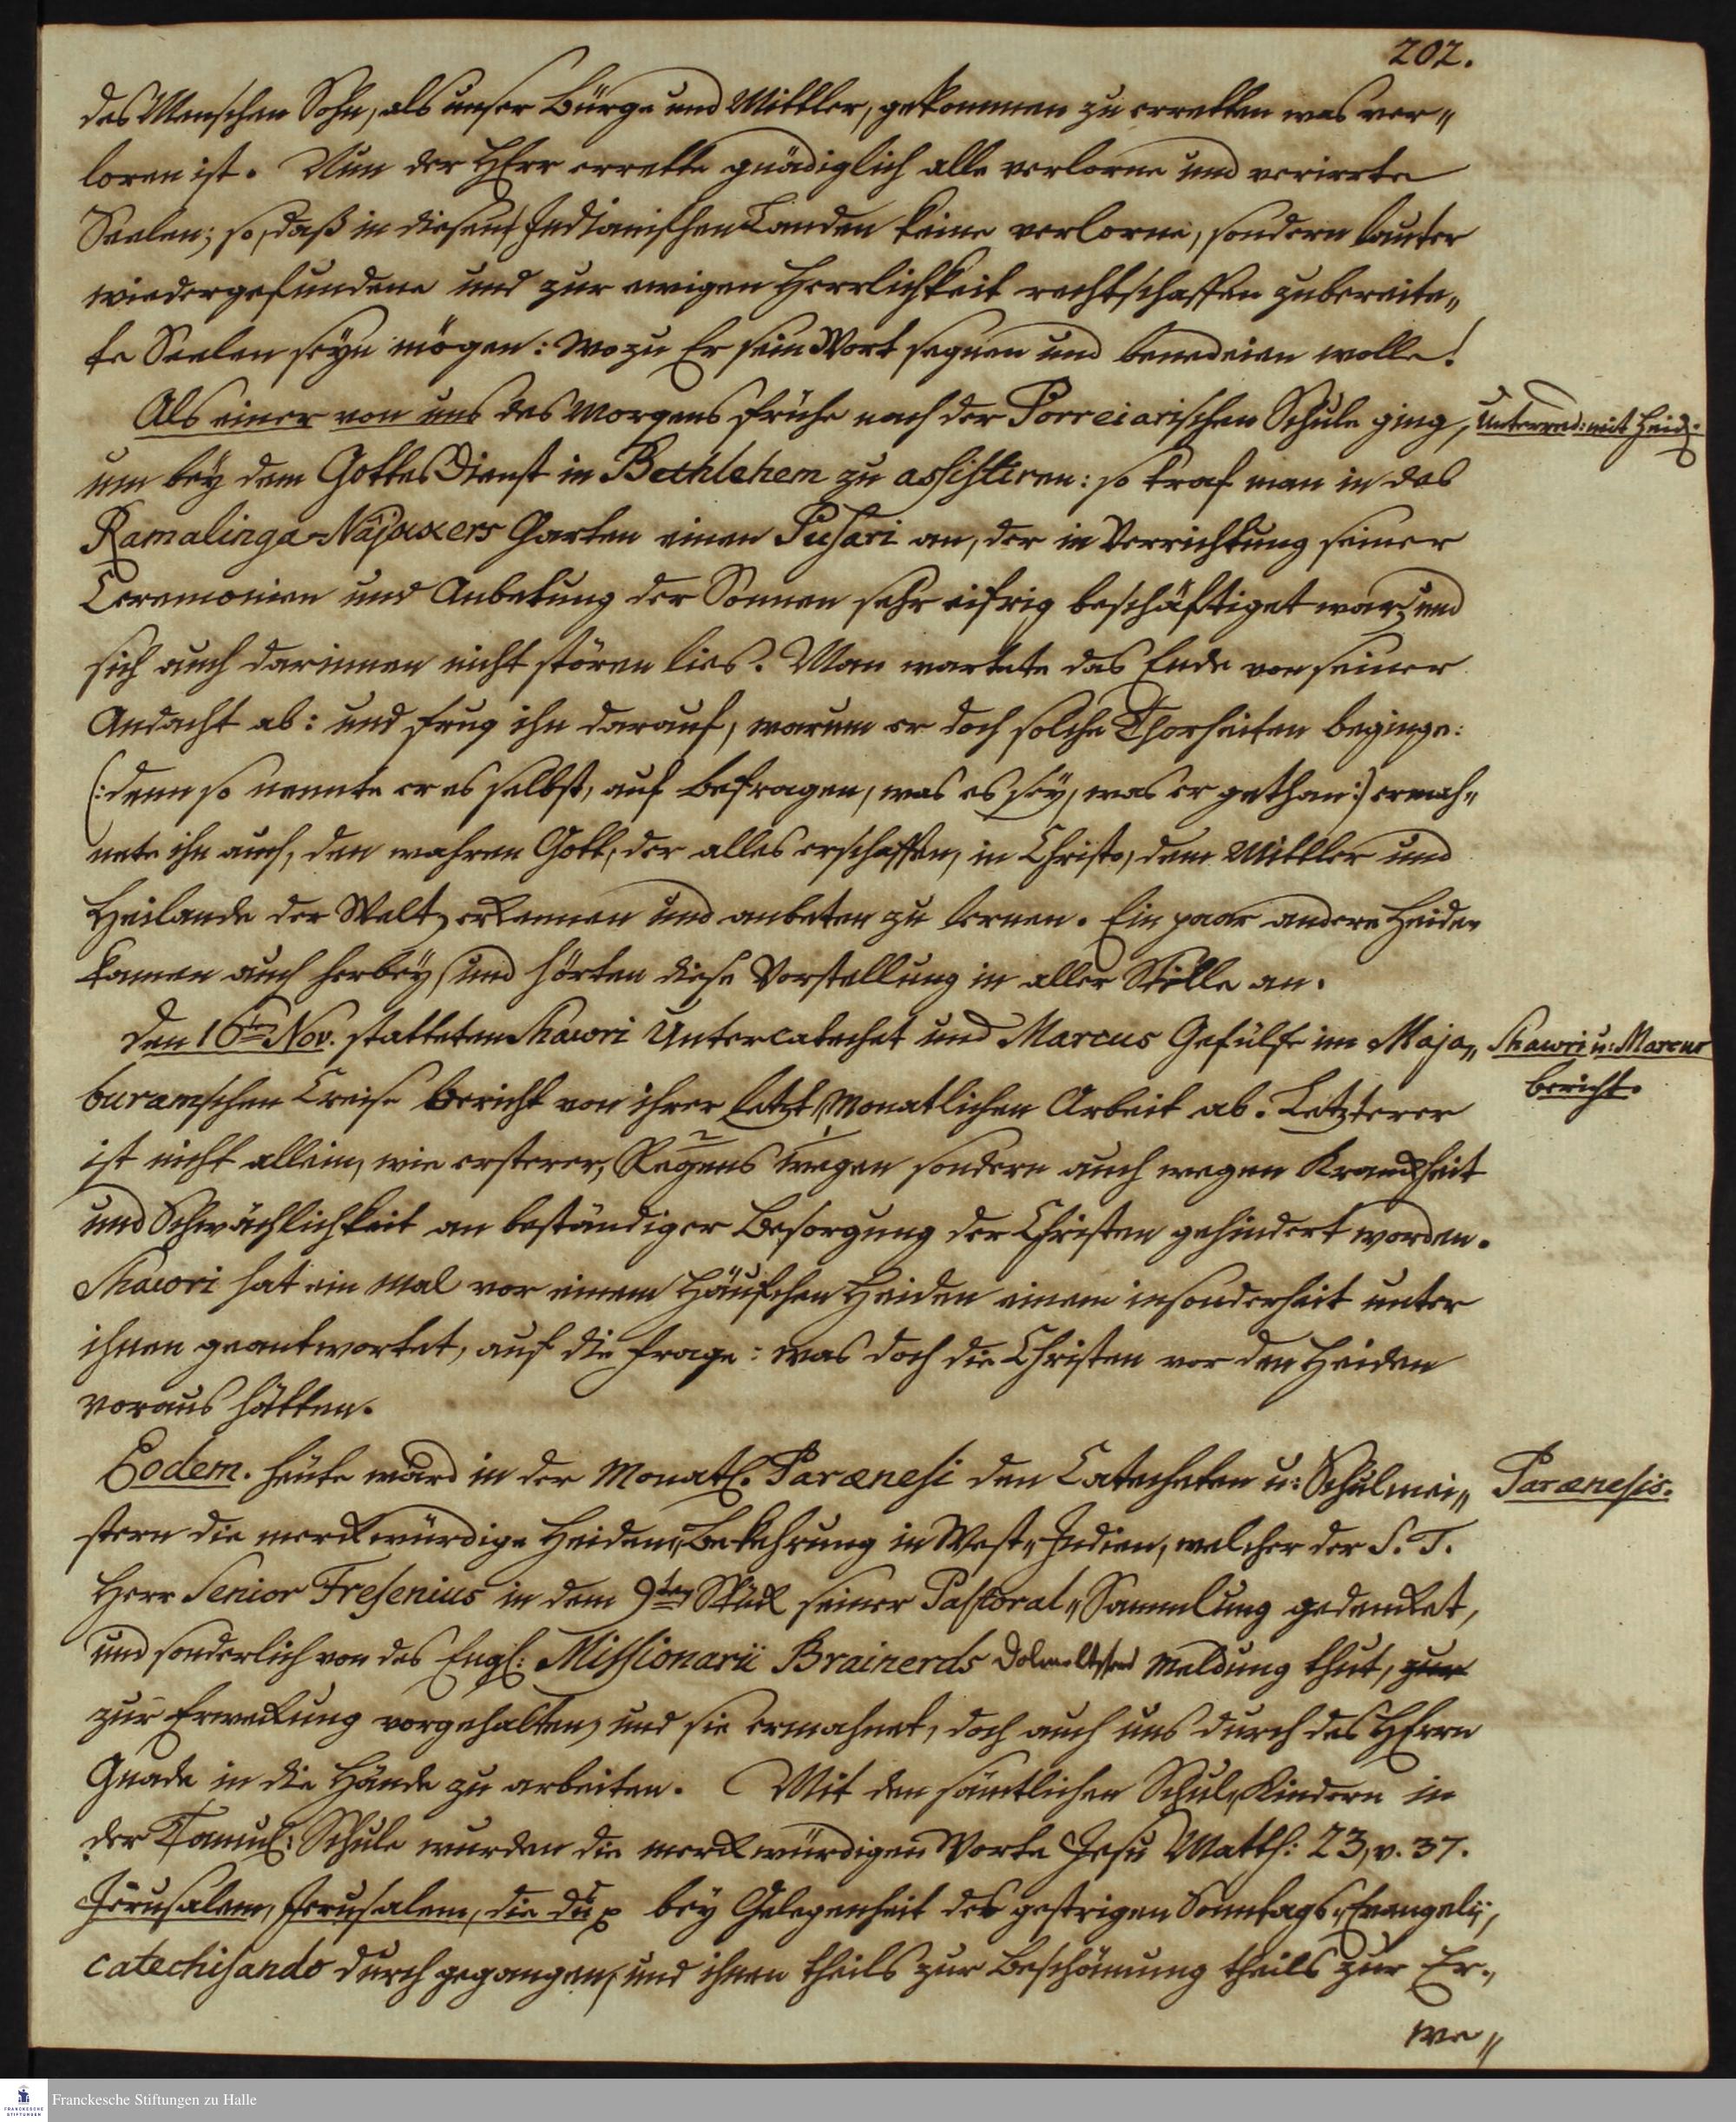 202.
des Menschen Sohn, als unser Bürge und Mittler, gekommen zu erretten was ver„
loren ist. Nun der HErr errette gnädiglich alle verlorne und verirrte
Seelen; so, daß in diesen Indianischen Landen keine verlorne, sondern lauter
wiedergefundene und zur ewigen Herrlichkeit rechtschaffen zubereite„
te Seelen seyn mögen: wozu Er sein Wort segnen und benedeien wolle!
Als einer von uns des Morgens frühe nach der Porreiarischen Schule ging,
Unterred: mit Heid:
um bey dem GottesDienst in Bethlehem zu assistiren: so traf man in des
Ramalinga-Näjakkers Garten einen Pusari an, der in Verrichtung seiner
Ceremonien und Anbetung der Sonnen sehr eifrig beschäftiget war, und
sich auch darinnen nicht stören lies. Man wartete das Ende von seiner
Andacht ab: und frug ihn darauf, warum er doch solche Thorheiten beginge:
(: denn so nennte er es selbst, auf Befragen, was es sey, was er gethan :) ermah„
nete ihn auch, den wahren Gott, der alles erschaffen, in Christo, dem Mittler und
Heilande der Welt, erkennen und anbeten zu lernen. Ein paar andere Heiden
kamen auch herbey, und hörten diese Vorstellung in aller Stille an.
Den 16ten Nov. statteten Shawri Untercatechet und Marcus Gehülfe im Maja„
Shawri u: Marcus
Bericht.
buramschen Creise Bericht von ihrer letzt„Monatlichen Arbeit ab. Letzterer
ist nicht allein, wie ersterer, Regens wegen sondern auch wegen Kranckheit
und Schwächlichkeit an beständiger Besorgung der Christen gehindert worden.
Shawri hat ein mal vor einem Häufchen Heiden einem insonderheit unter
ihnen geantwortet, auf die Frage: was doch die Christen vor den Heiden
voraus hätten.
Eodem. Heute ward in der Monatl. Parænesi den Catecheten u: Schulmei„
Parænesis.
stern die merckwürdige Heiden„Bekehrung in West„Indien, welcher der S. T.
Herr Senior Fresenius in dem 9ten Stück seiner Pastoral„Sammlung gedencket,
und sonderlich von des Engl: Missionarii Brainerds Dolmetschers Meldung thut, zur
zur Erweckung vorgehalten, und sie ermahnet, doch auch uns durch des HErrn
Gnade in die Hände zu arbeiten. Mit den sämtlichen Schul„Kindern in
der Tamul: Schule wurden die merckwürdigen Worte Jesu Matth: 23, v. 37.
Jerusalem, Jerusalem, die du p bey Gelegenheit des gestrigen Sonntags„Evangelii,
catechisando durchgegangen, und ihnen theils zur Beschämung theils zur Er„
we„
Franckesche Stiftungen zu Halle
FRANCKESCHE
STIFTUNGEN